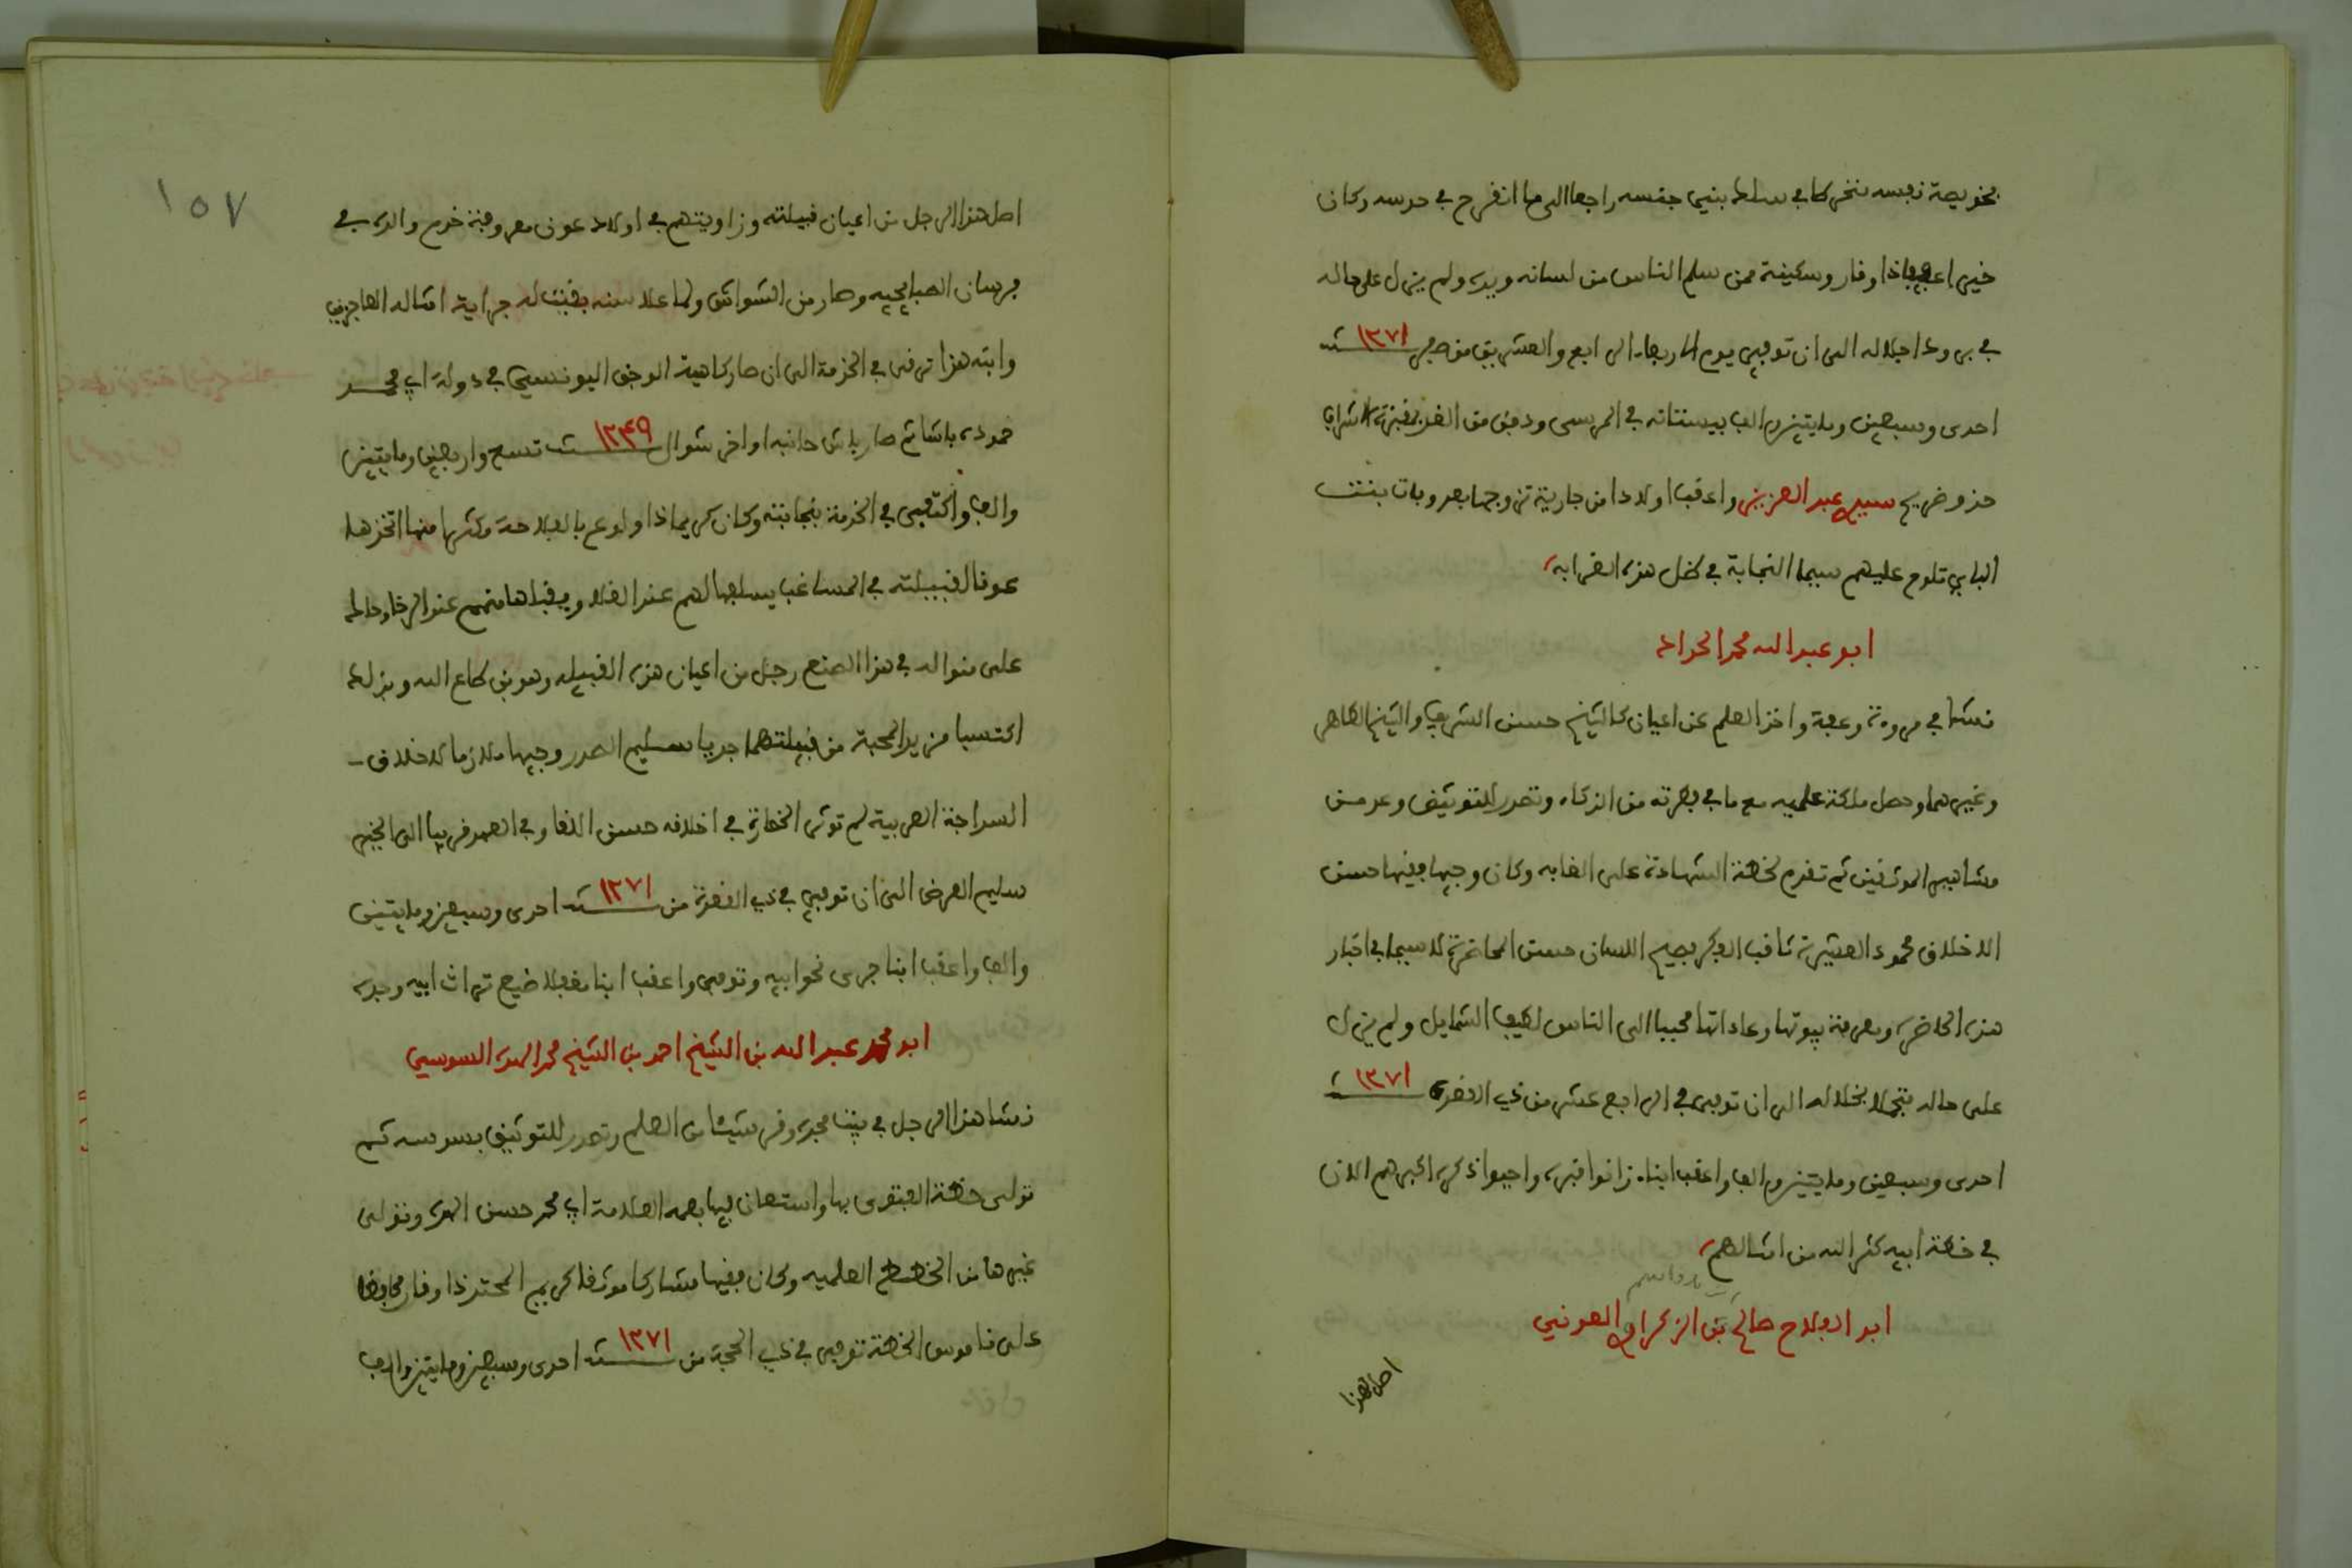 بخويصة نفسه ننخرطا في سلط بنيى جنسه راجعا الى ما انفرح في حرسه وكان
خيرا عفيفا ذا وقار وسكينة ممن سلم الناس من لسانه ويده ولم يزل على حاله
في برود اجلاله الى ان توفي يوم الاربعاء الرابع والعشرين من صفر ١٢٧١ سنة
احدى وسبعين ومايتين والف ببستانه في المرسى ودفن من الغد بمقبرة الاشراف
حذو ضريح سيدي عبد العزيز واعقب اولادا من جارية تزوجها بعد وفاة بنت
الباي تلوح عليهم سيما النجابة في ظل هذه القرابه
ابو عبد الله محمد الحداد
نشا في مروءة وعفة واخذ العلم عن اعيان كالشيخ حسن الشريف والشيخ الطاهر
وغيرهما وحصل ملكة علميه مع ما في فطرته من الذكاء وتصدر للتوثيق وعد من
مشاهير الموثقين ثم تقدم لخطة الشهادة على الغابه وكان وجيها فيها حسن
الاخلاق محمود العشيرة ثاقب الفكر فصيح اللسان حسن المحاضرة لا سيما في اخبار
هذه الحاضره ومعرفة بيوتها وعاداتها محببا الى الناس لطيف الشمايل ولم يزل
على حاله متجملا بخلاله الى ان توفي في الرابع عشر من ذي القعدة ١٢٧١ سنة
احدى وسبعين ومايتين والف واعقب ابناء زانوا قبره واحيوا ذكره اكبرهم الان
في خطة ابيه كثر الله من امثالهم
ابو الفلاح صالح بن الزكراوي العوني
اصل هذا
١٥٧
اصل هذا الرجل من اعيان قبيلته وزاويتهم في اولاد عون معروفة خدم والده في
فرسان الصبايحيه وصار من الشواش ولما علا سنه بقيت له جراية امثاله العاجزين
وابنه هذا ترقى في الخدمة الى ان صار كاهية الوجق اليونسي في دولة ابي محمد
حموده باشا ثم صار باش حانبه اواخر شوال سنة ١٢٤٩ تسع واربعين ومايتين
والف واكتفي في الخدمة بنجابته وكان كريما ذا ولوع بالفلاحة مكثرا منها اتخذها
عونا لقبيلته في المساغب يسلفها لهم عند الغلا ويقبلها منهم عند الرخا وحاله
على منواله في هذا الصنع رجل من اعيان هذه القبيله وهو بن طاع الله وبذلك
اكتسبا مزيد المحبة من قبيلتهما جديا سليم الصدر وجيها ملازما لاخلاق
السذاجة العربية لم توثر الحضارة في اخلاقه حسن اللقا وفي العهد قريبا الى الخير
سليم العرض الى ان توفي في ذي القعدة من سنة ١٢٧١ احدى وسبعين ومايتين
والف واعقب ابنا جرى نحو ابيه وتوفي واعقب ابنا مغفلا ضيع تراث ابيه وجده
ابو محمد عبد الله بن الشيخ احمد بن الشيخ محمد الهده السوسي
نشا هذا الرجل في بيت مجده وقرا شيئا من العلم وتصدر للتوثيق بسوسه ثم
تولى خطة الفتوى بها واستعان فيها بعمه العلامة ابي محمد حسن الهده وتولى
غيرها من الخطط العلميه وكان فقيها مشاركا موثقا كريم المحتد ذا وقار محافظا
على ناموس الخطة توفي في ذي الحجة من سنة ١٢٧١ احدى وسبعين ومايتين والف